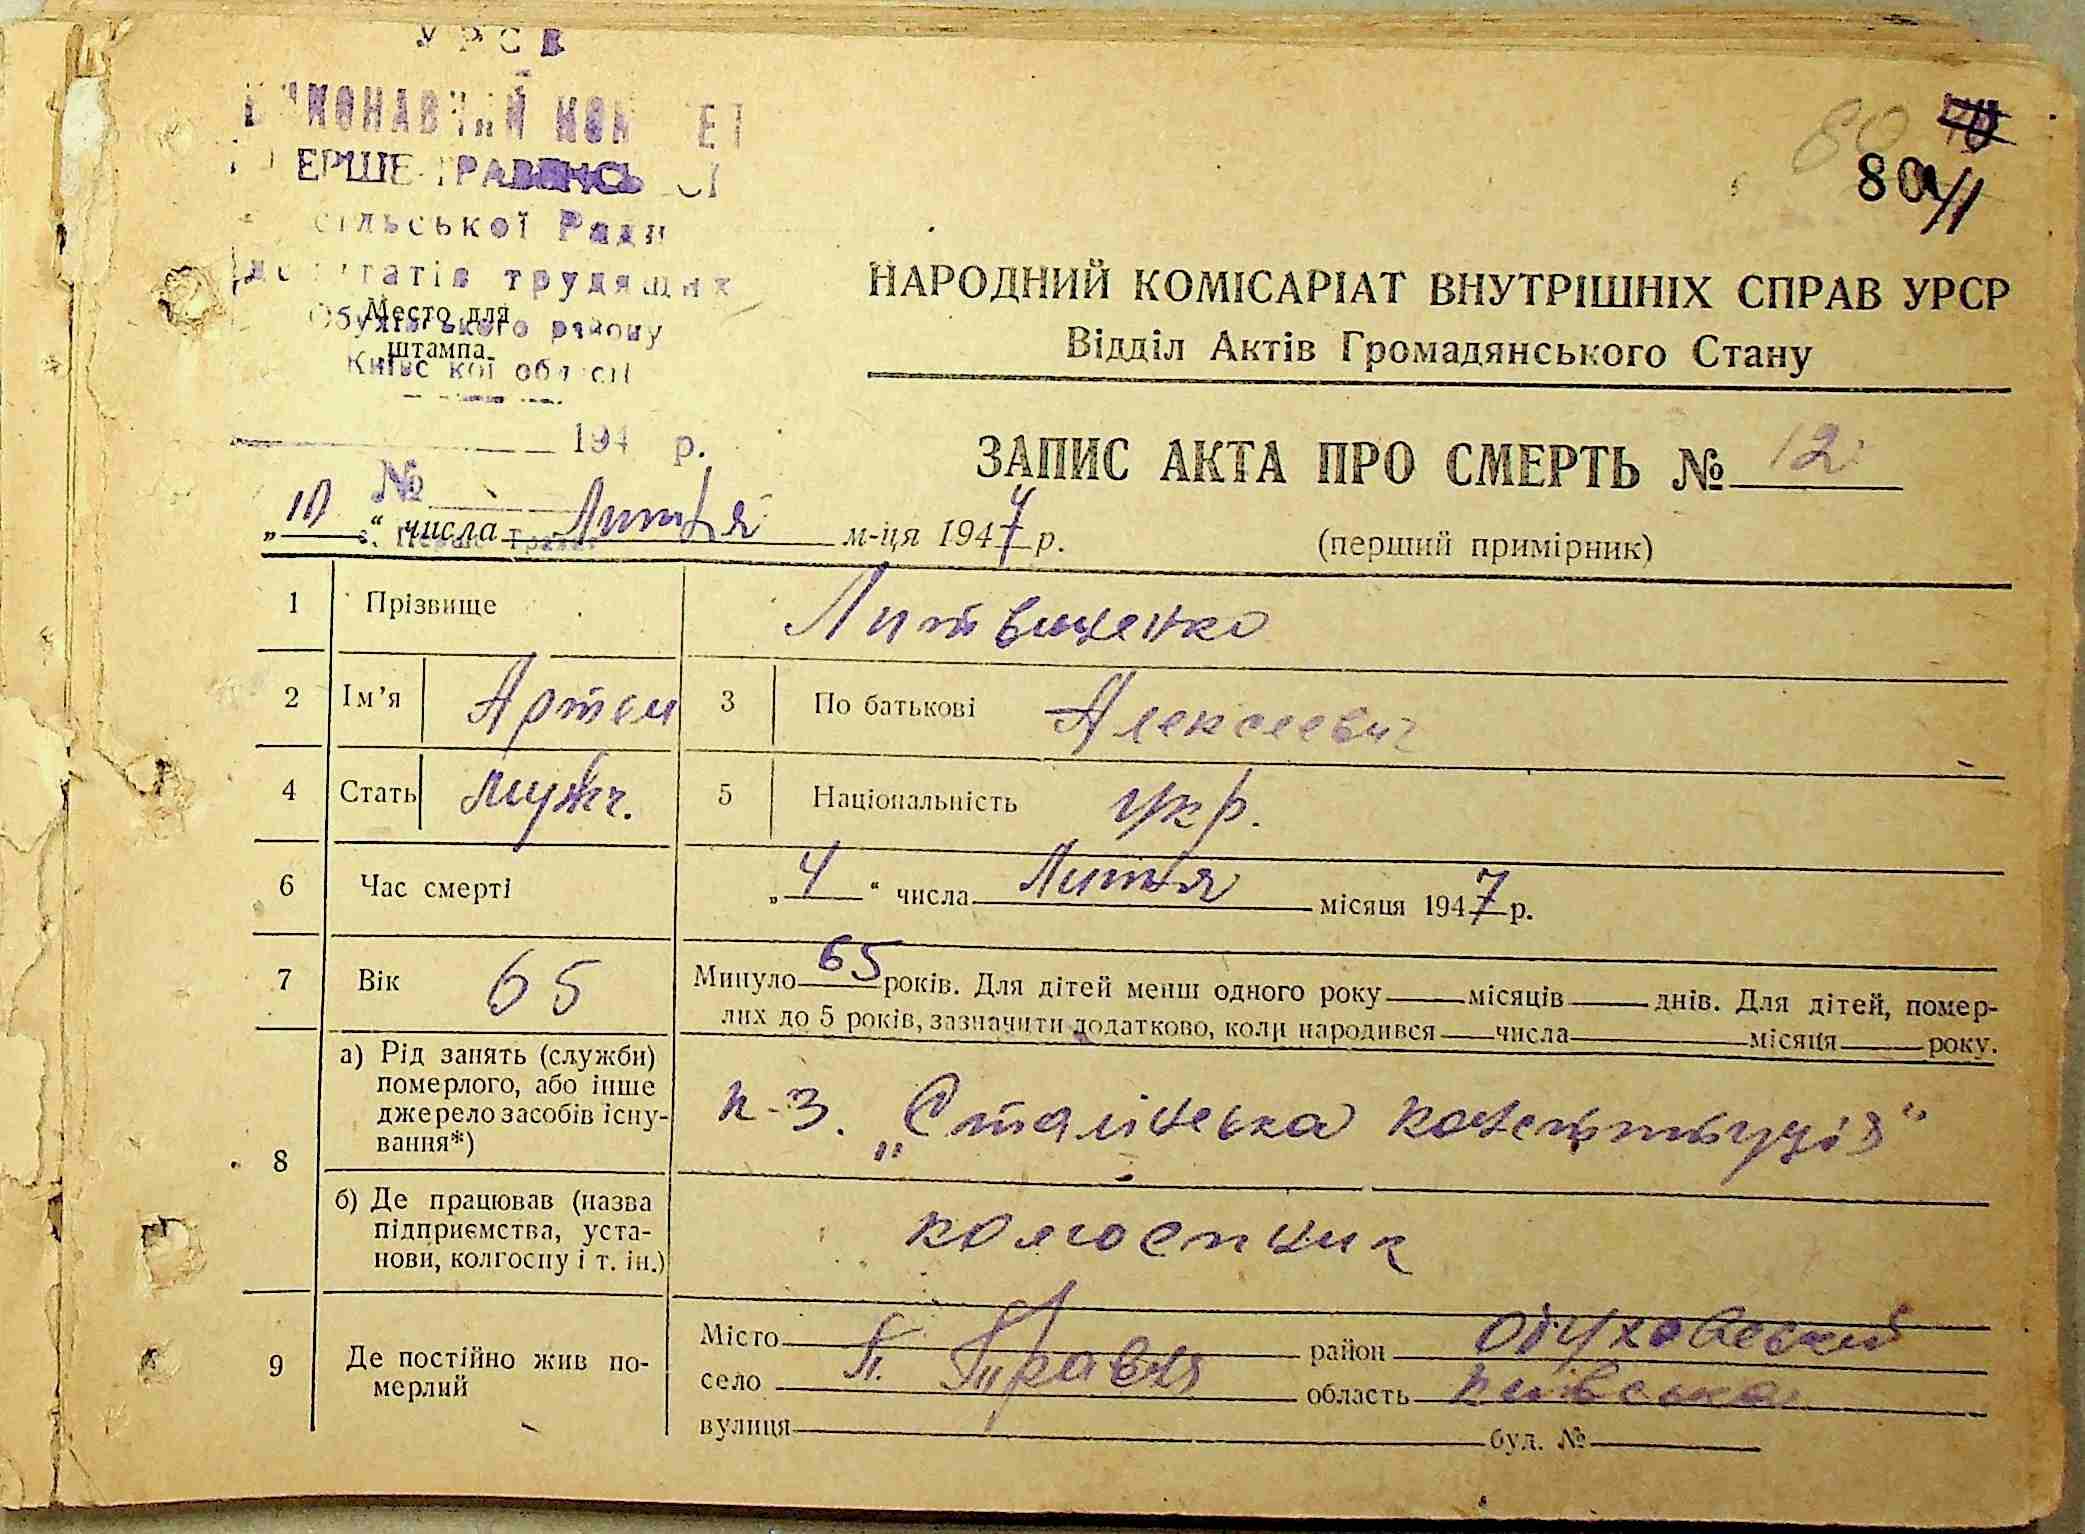 УРСР
ВИКОНАВЧИЙ КОМІТЕТ
ПЕРШЕ-ТРАВЕНСЬКОЇ
сільської Ради
депутатів трудящих
Обухівського району
Київської області
Место для
штампа
194 р.
№
80
80
НАРОДНИЙ КОМІСАРІАТ ВНУТРІШНІХ СПРАВ УРСР
Відділ Актів Громадянського Стану
ЗАПИС АКТА ПРО СМЕРТЬ № 12
(перший примірник)
„10“ числа Лютня м-ця 1947 р.
1 Прізвище Литвиненко
2 Ім’я Артем 3 По батькові Алексеевич
4 Стать мужч. 5 Національність укр.
6 Час смерті „4“ числа Лютня місяця 1947 р.
7 Вік 65 Минуло 65 років. Для дітей менш одного року місяців днів. Для дітей, помер-
лих до 5 років, зазначити додатково, коли народився числа місяця року.
8 а) Рід занять (служби)
померлого, або інше
джерело засобів існу-
вання*)
к-з. „Сталінська конституція“
б) Де працював (назва
підприємства, уста-
нови, колгоспу і т. ін.)
колгоспник
9 Де постійно жив по-
мерлий
Місто район Обуховский
село П. Травня область Київська
вулиця буд. №